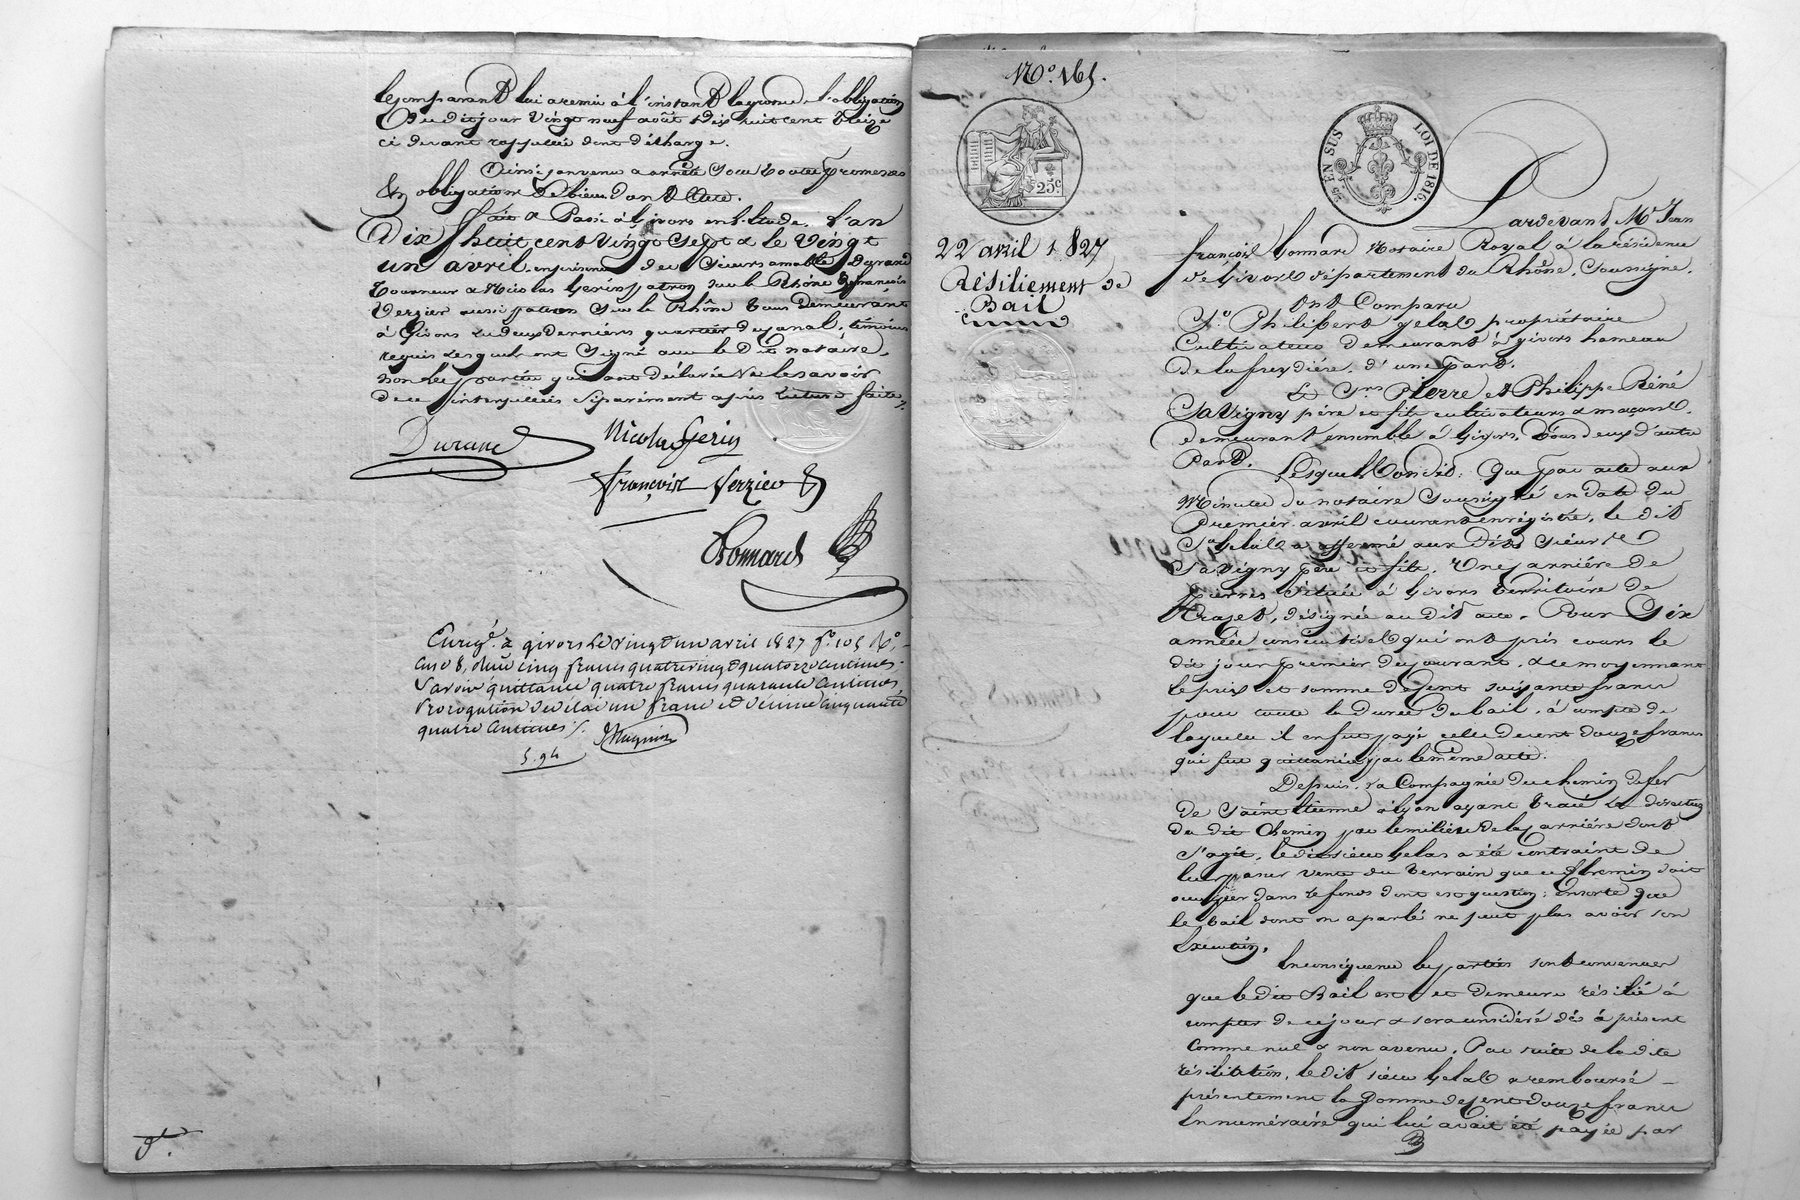 le comparant lui a remis à l'instant la grosse de l'obligation
Du dit jour vingt neuf août dix huit cent treize
ci devant rappellée dont décharge.
Ainsi convenu & arrêté sous toutes promesses
& obligations de biens. Dont Acte.
fait & Passé à Givors en l'Etude. L'an
Dix huit cent vingt sept & le vingt
un avril, en présence des Sieurs amable Durand
tourneur & Nicolas Gerin patron sur le Rhône & françois
Verzier aussi patron sur le Rhône tous demeurant
à Givors les deux derniers quartier du canal, témoins
requis Lesquels ont Signé avec le Dit notaire,
non les parties qui ont déclaré ne le savoir
de ce interpellés séparément après lecture faite.
Durand
Nicolas Gerin
françois Verzier
Bonnard
Enrigé. à givors le vingt un avril 1827 fo. 105 Ro.
case 8, reçu cinq francs quatre vingt quatorze centimes.
Savoir quittance quatre francs quarante centimes,
Prorogation de délai un franc et dixième cinquante
quatre centimes /.
5. 94
Magnin
No. 165.
25c.
25c EN SUS
LOI DE 1816.
22 avril 1827
Résiliement de
Bail
Pardevant Me Jean
françois Bonnard Notaire Royal à la résidence
de Givors département du Rhône, Soussigné.
Ont Comparu
So. Philibert gelas propriétaire
Cultivateur demeurant à givors hameau
De la freydière, d'une part.
Et Srs Pierre et Philippe Réné
Savigny père et fils cultivateurs & maçons.
demeurant ensemble à Givors, Tous deux d'autre
Part.
Lesquels ont dit: Que par acte aux
Minutes du notaire soussigné en date du
Premier avril courant enrégistré, le dit
Sr Gelas a affermé aux dits Sieurs
Savigny père et fils, Une carrière de
Pierres située à Givors territoire de
Trajet, désignée au dit acte. Pour Six
années consécutives qui ont pris cours le
dit jour premier du courant, & le moyennant
le prix et somme de cent soixante francs
pour toute la durée du bail, à compte de
laquelle il en fut payé celle de cent douze francs
qui fut quittancée par le même acte.
Depuis, La Compagnie du chemin de fer
de Saint Etienne à Lyon ayant tracé la direction
du dit Chemin par le milieu de la carrière dont
s'agit, le dit sieur Gelas a été contraint de
leur passer vente du terrain que ce chemin doit
occuper dans le fonds dont est question; ensorte que
le bail dont on a parlé ne peut plus avoir son
Exécution,
En conséquence les parties sont convenues
que le dit Bail est et demeure résilié à
compter de ce jour & sera considéré dès à présent
comme nul & non avenu. Par suite de la dite
résiliation, le dit sieur Gelas a remboursé
présentement la somme de cent douze francs
En numéraire qui lui avait été payée par